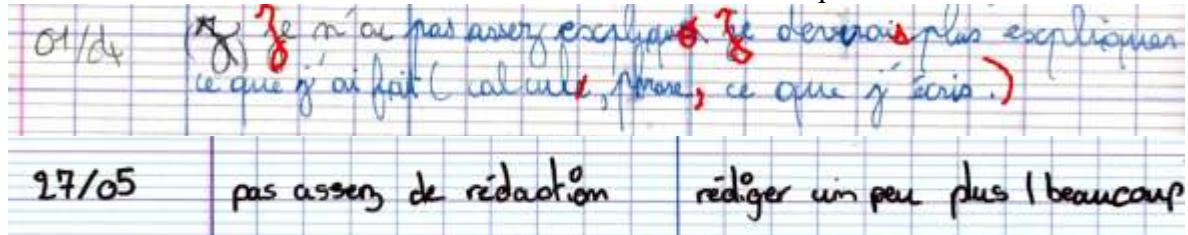 01/04 Je n'ai pas assez expliqué Je devrais plus expliquer
ce que j'ai fait (calculs, phrase, ce que j'écris.)
27/05 pas assez de rédaction rédiger un peu plus / beaucoup